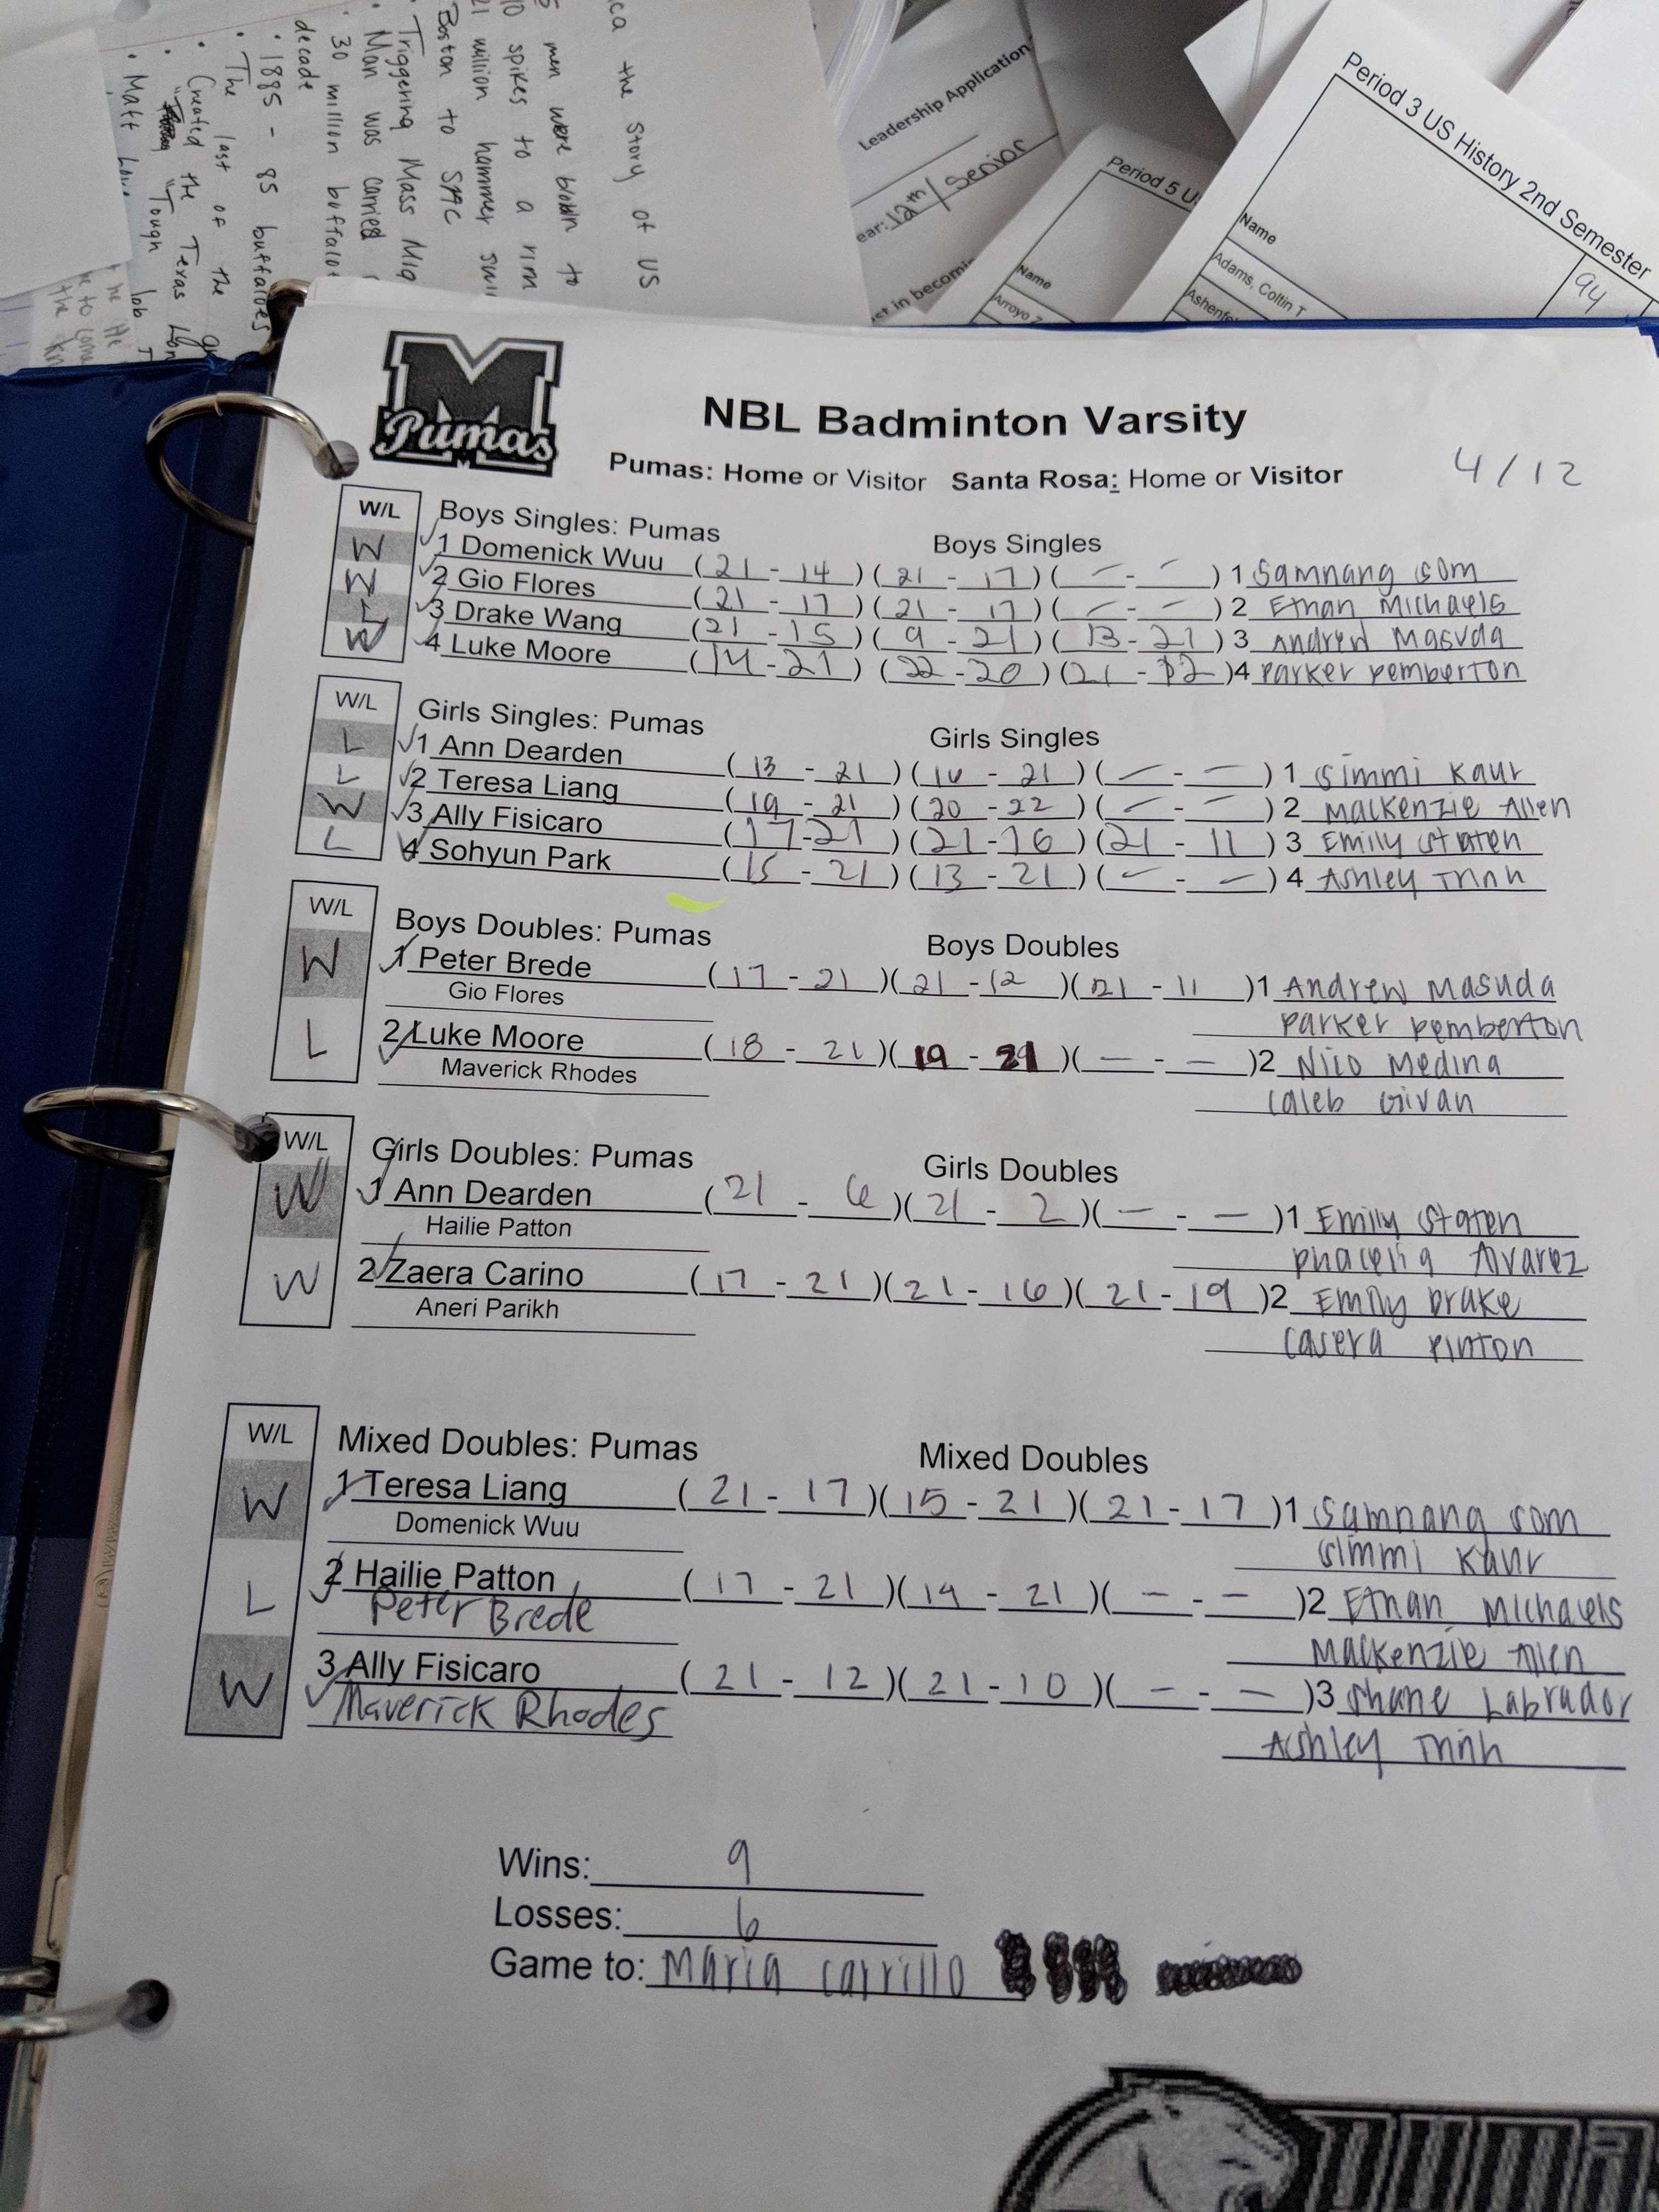 ica the Story of US
men were blown to
10 spikes to a rim
21 million hammer
Boston to SAC
Triggering Mass Mig
• Man was carried
• 30 million buffalo
decade
• 1885 - 85 buffaloes
• The last of the
• Created the Texas
"Tough
• Matt
Leadership Application
ear: 12th / Senior
st in becomi
Period 5 U
Name
Arroyo
Period 3 US History 2nd Semester
Name
94
Adams, Coltin T
Ashenfe
M
Pumas
NBL Badminton Varsity
Pumas: Home or Visitor Santa Rosa: Home or Visitor
4/12
W/L Boys Singles: Pumas Boys Singles
W 1 Domenick Wuu (21 - 14)(21 - 17)( - - - ) 1 Samnang Som
W 2 Gio Flores (21 - 17)(21 - 17)( - - - ) 2 Ethan Michaels
L 3 Drake Wang (21 - 15)(9 - 21)(13 - 21) 3 Andrew Masuda
W 4 Luke Moore (14 - 21)(22 - 20)(21 - 12) 4 Parker Pemberton
W/L Girls Singles: Pumas Girls Singles
L 1 Ann Dearden (13 - 21)(16 - 21)( - - - ) 1 Simmi Kaur
L 2 Teresa Liang (19 - 21)(20 - 22)( - - - ) 2 Mackenzie Allen
W 3 Ally Fisicaro (17 - 21)(21 - 16)(21 - 11) 3 Emily Staten
L 4 Sohyun Park (15 - 21)(13 - 21)( - - - ) 4 Ashley Trinh
W/L Boys Doubles: Pumas Boys Doubles
W 1 Peter Brede (17 - 21)(21 - 12)(21 - 11) 1 Andrew Masuda
Gio Flores Parker Pemberton
L 2 Luke Moore (18 - 21)(19 - 21)( - - - ) 2 Nico Medina
Maverick Rhodes Caleb Givan
W/L Girls Doubles: Pumas Girls Doubles
W 1 Ann Dearden (21 - 6)(21 - 2)( - - - ) 1 Emily Staten
Hailie Patton Phacelia Alvarez
W 2 Zaera Carino (17 - 21)(21 - 16)(21 - 19) 2 Emily Drake
Aneri Parikh Casera Pinton
W/L Mixed Doubles: Pumas Mixed Doubles
W 1 Teresa Liang (21 - 17)(15 - 21)(21 - 17) 1 Samnang Som
Domenick Wuu Simmi Kaur
L 2 Hailie Patton (17 - 21)(19 - 21)( - - - ) 2 Ethan Michaels
Peter Brede Mackenzie Allen
W 3 Ally Fisicaro (21 - 12)(21 - 10)( - - - ) 3 Shane Labrador
Maverick Rhodes Ashley Trinh
Wins: 9
Losses: 6
Game to: Maria Carrillo
PUMA